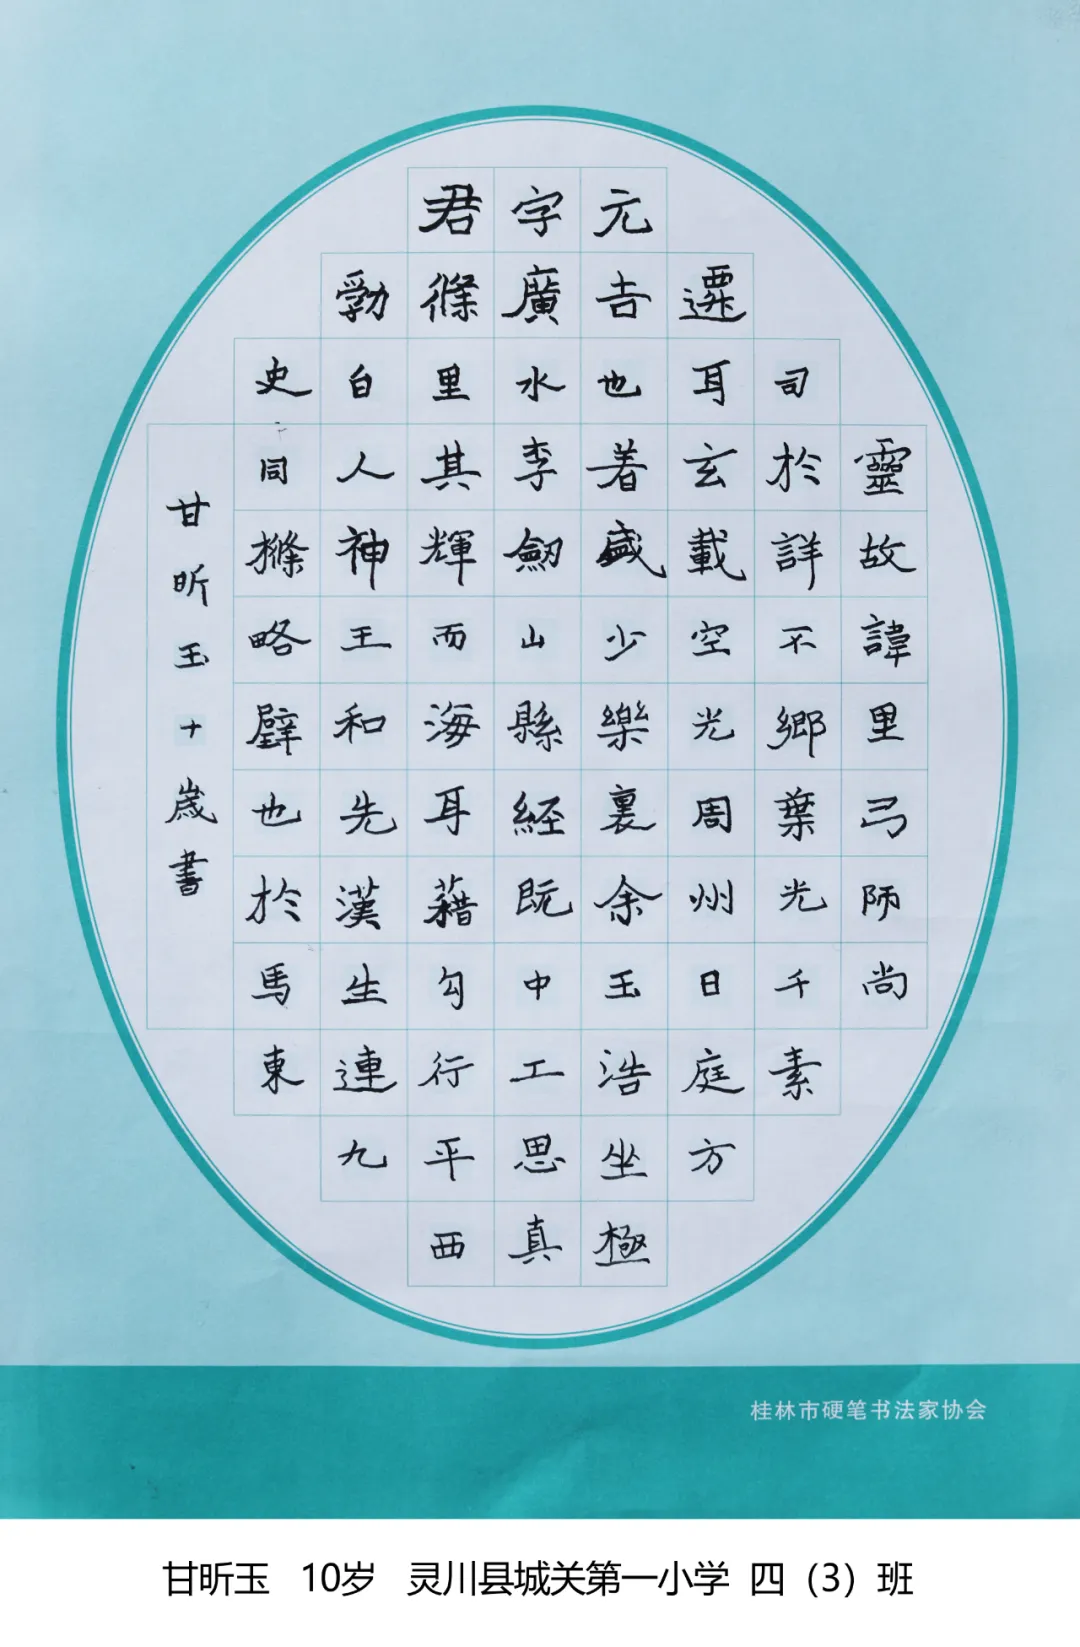 靈故諱里弓师尚
司於詳不鄉葉光千素
遷耳玄載空光周州日庭方
元吉也着盛少樂裏余玉浩坐極
字廣水李劒山縣經既中工思真
君條里其輝而海耳藉勾行平西
勃白人神王和先漢生連九
史同略璧也於馬東
甘昕玉十歳書
桂林市硬笔书法家协会
甘昕玉 10岁 灵川县城关第一小学 四（3）班